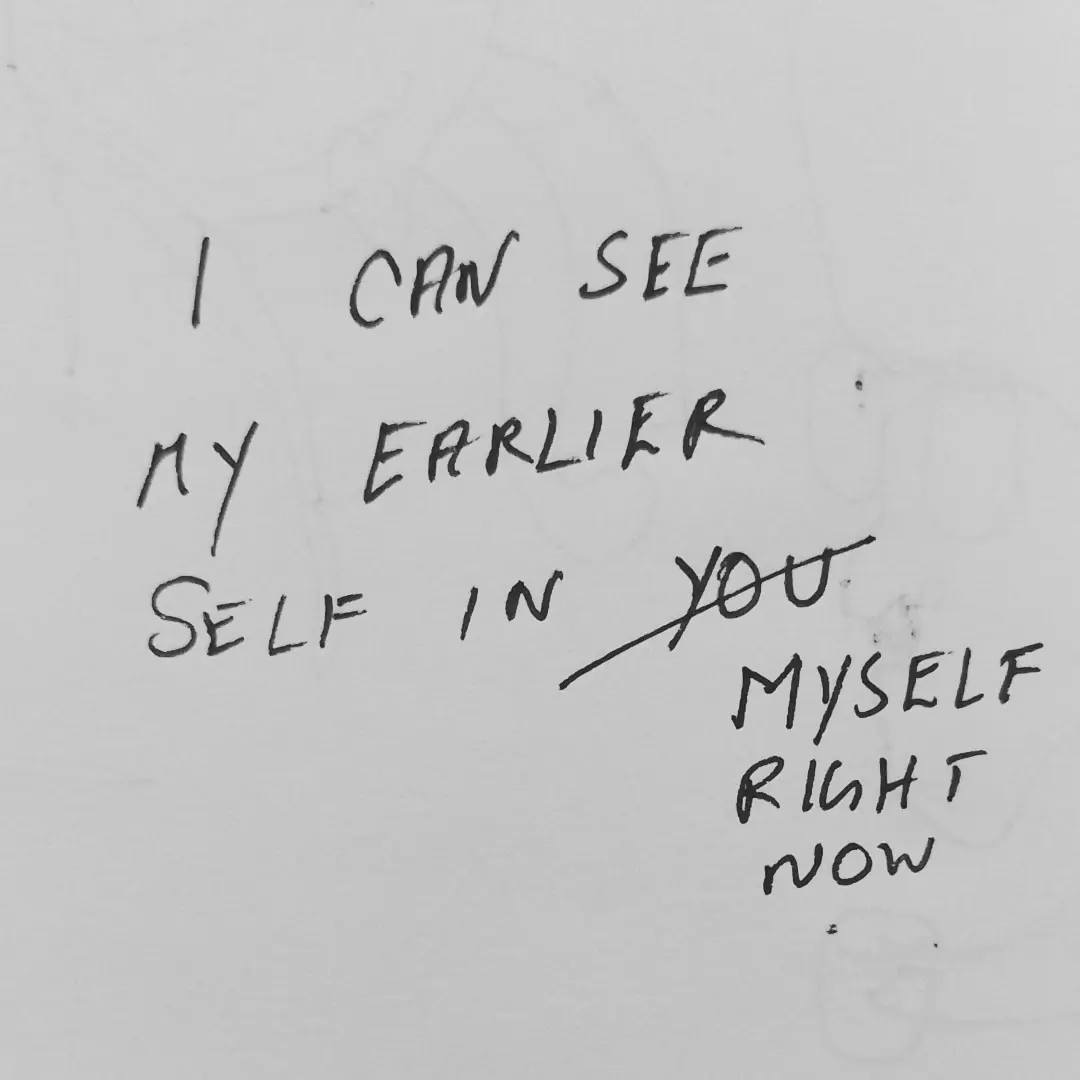 I CAN SEE
MY EARLIER
SELF IN YOU
MYSELF
RIGHT
NOW